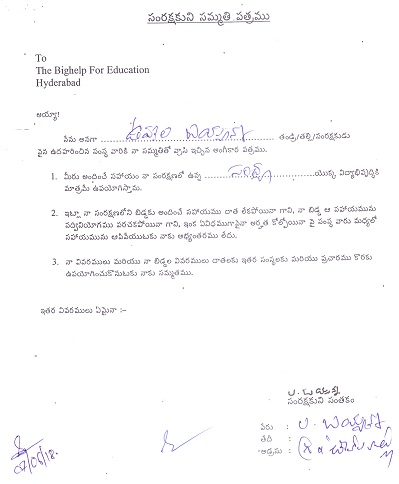 సంరక్షకుని సమ్మతి పత్రము
To
The Bighelp For Education
Hyderabad
అయ్యా!
నేను అనగా ఉప్పుల బయ్యన్న తండ్రి/తల్లి/సంరక్షకుడు
పైన ఉదహరించిన సంస్థ వారికి నా సమ్మతితో వ్రాసి ఇచ్చిన అంగీకార పత్రము.
1. మీరు అందించే సహాయం నా సంరక్షణలో ఉన్న ........ యొక్క విద్యాభివృద్ధికి
మాత్రమే ఉపయోగిస్తాము.
2. ఇట్లా నా సంరక్షణలోని బిడ్డకు అందించే సహాయము దాత లేకపోయినా గాని, నా బిడ్డ ఆ సహాయమును
సద్వినియోగము పరచకపోయినా గాని, ఇంక ఏవిధముగానైనా అర్హత కోల్పోయినా పై సంస్థ వారు మధ్యలో
సహాయమును ఆపివేయుటకు నాకు అభ్యంతరము లేదు.
3. నా వివరములు మరియు నా బిడ్డల వివరములు దాతలకు ఇతర సంస్థలకు మరియు ప్రచారము కొరకు
ఉపయోగించుకొనుటకు నాకు సమ్మతము.
ఇతర వివరములు ఏమైనా :-
ఉ. బయ్యన్న
సంరక్షకుని సంతకం
పేరు : ఉ. బయ్యన్న
తేదీ :
అడ్రసు :